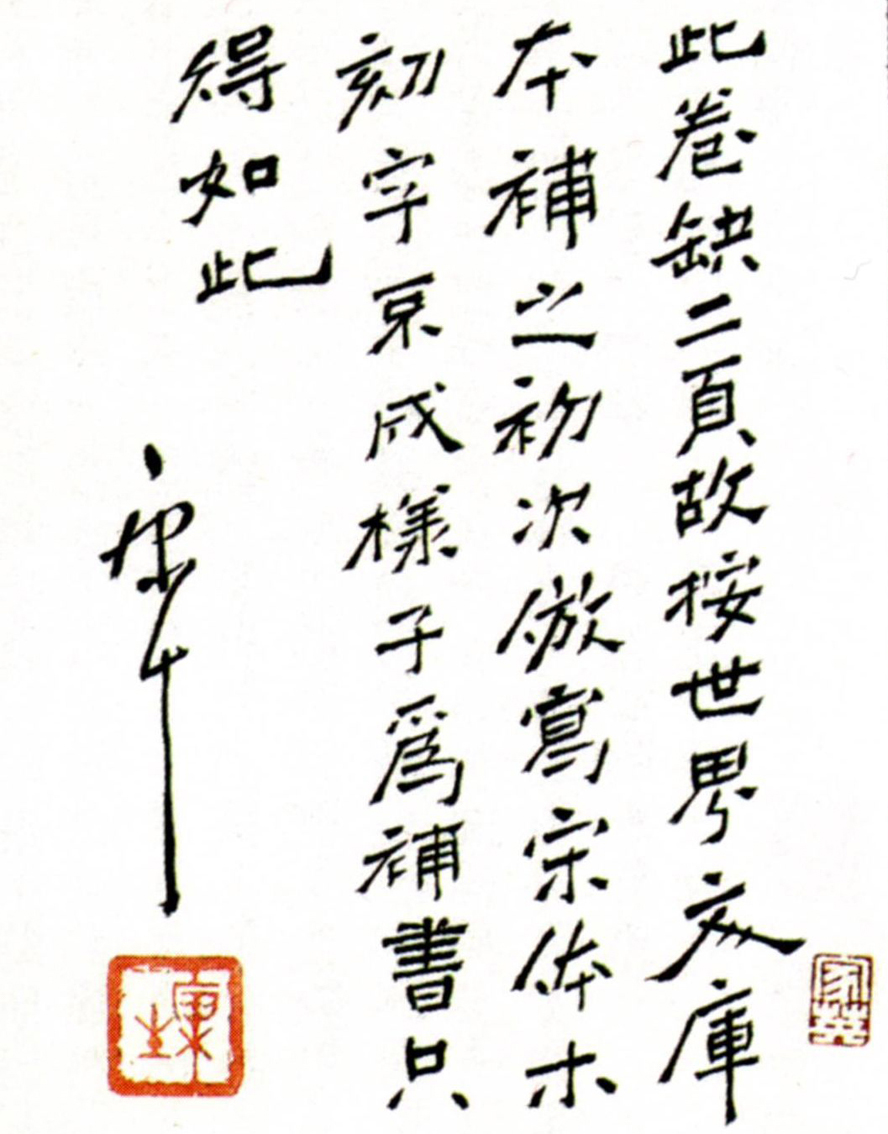 此卷缺二頁故按世界文庫
本補之初次倣寫宋体木
刻字成樣子爲補書只
得如此
康生
家英